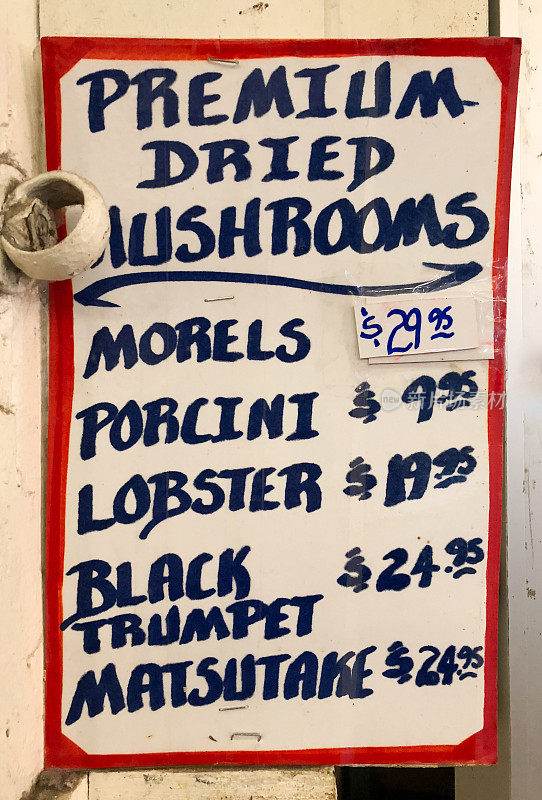 PREMIUM
DRIED
MUSHROOMS
MORELS $29.95
PORCINI $9.95
LOBSTER $19.95
BLACK $24.95
TRUMPET
MATSUTAKE $24.95
new 新片场素材